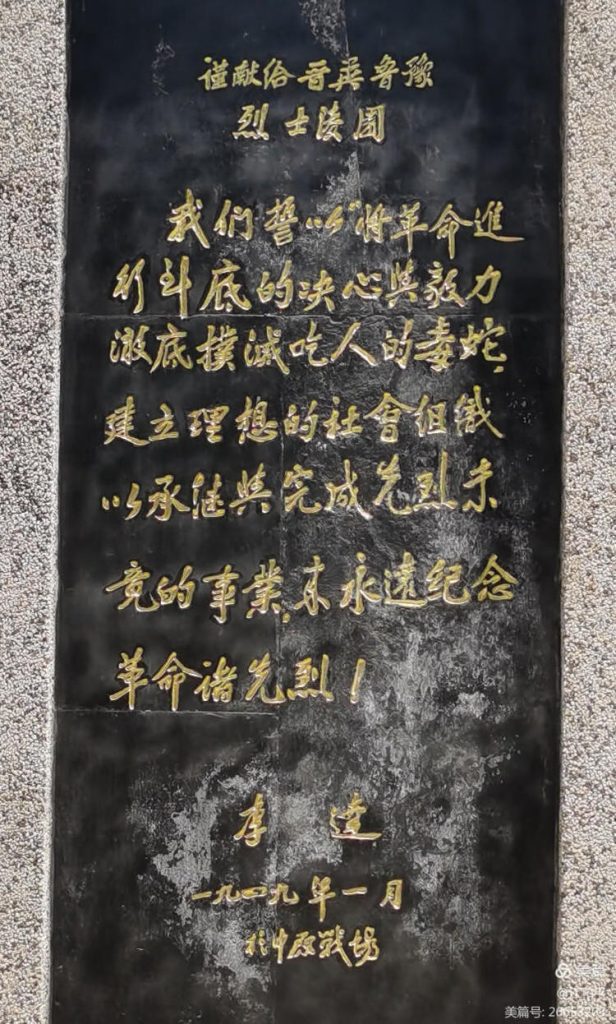 谨献给晋冀鲁豫
烈士陵园
我们誓以“将革命進
行斗底的决心與毅力
澈底撲滅吃人的毒蛇，
建立理想的社會组織
以承继與完成先烈未
竟的事業，来永遠纪念
革命诸先烈！
李達
一九四九年一月
於中原戰場
美篇号: